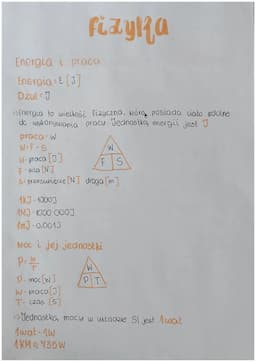 Fizyka
Energia i praca
Energia = E [J]
Dżul = J
Energia to wielkość fizyczna, którą posiada ciało zdolne
do wykonywania pracy. Jednostką energii jest J
praca = W
W = F · S
W - praca [J]
F - siła [N]
S - przesunięcie [N] droga [m]
W
F S
1kJ - 1000J
1MJ - 1000 000J
1mJ - 0,001J
Moc i jej jednostki
P = W
T
P - moc [W]
W - praca [J]
T - czas [S]
W
P T
Jednostką mocy w układzie SI jest 1 wat
1 wat = 1W
1KM ≈ 735W